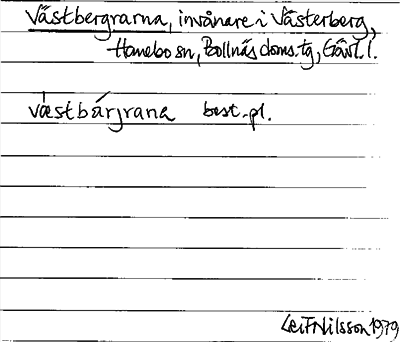 Västbergrarna, invånare i Västerberg,
Hanebo sn, Bollnäs doms.tg, Gävl.l.
västbärjrana best.pl.
Leif Nilsson 1979